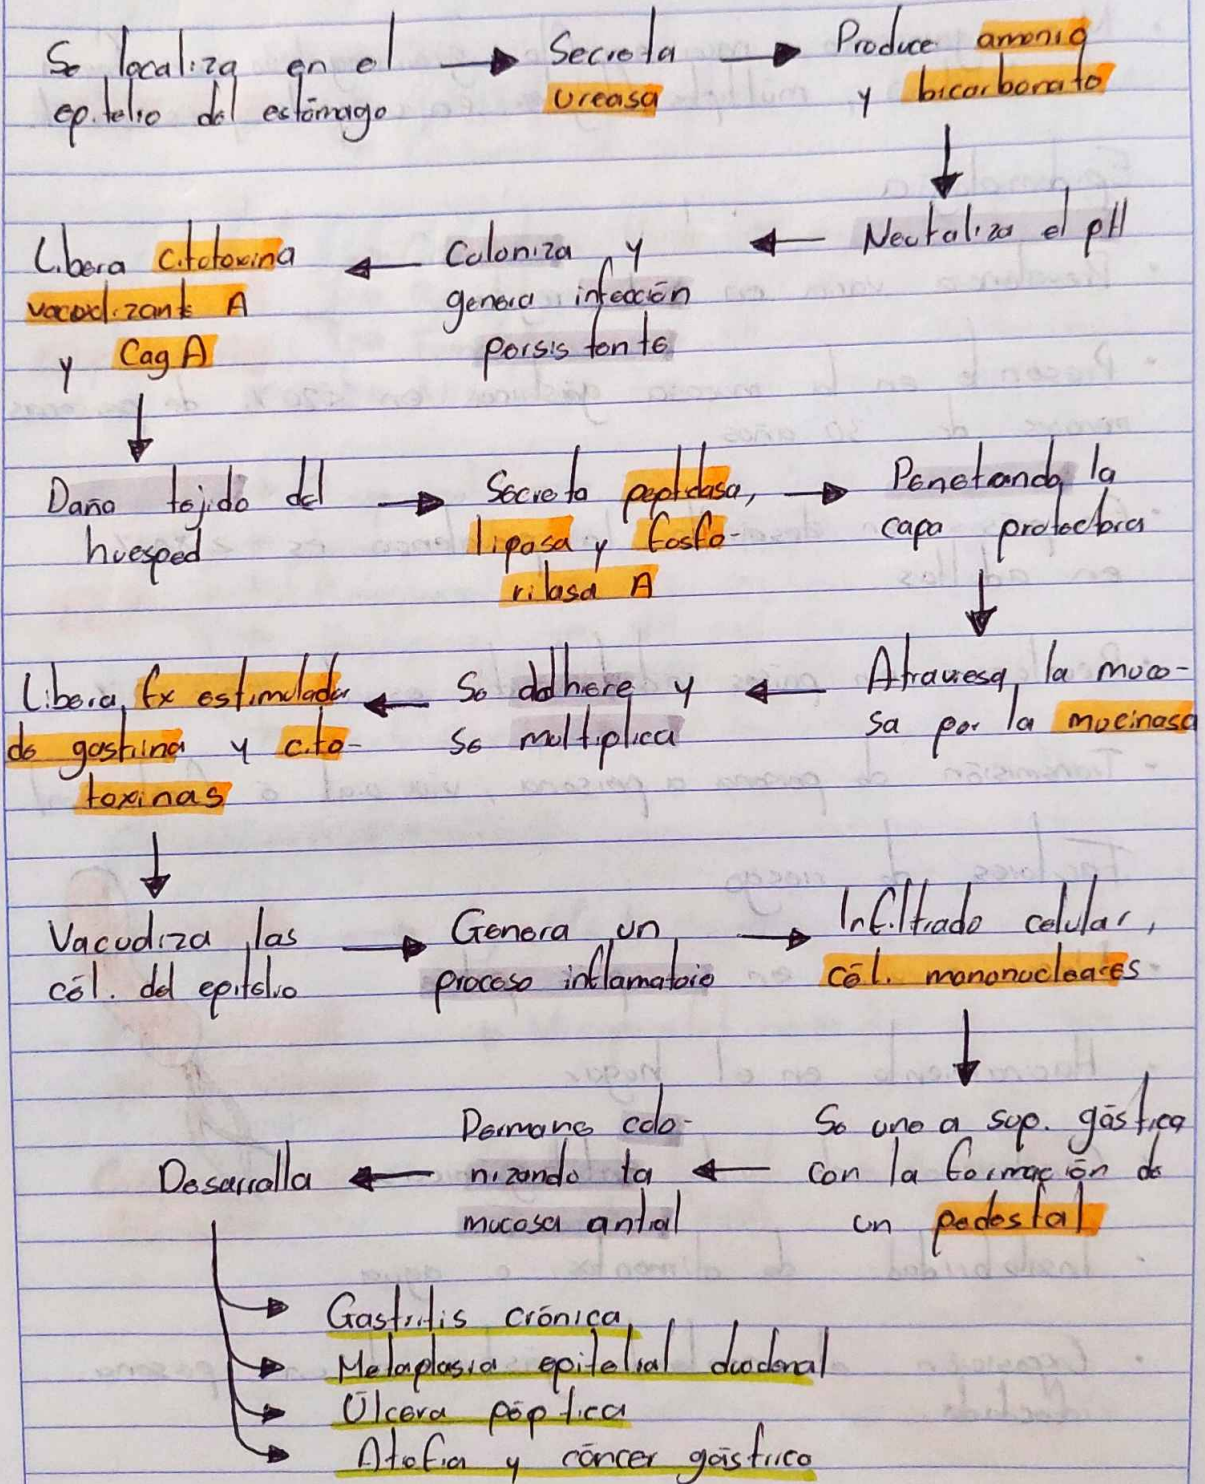 Se localiza en el
epitelio del estómago
Secreta
ureasa
Produce amonio
y bicarbonato
Neutraliza el pH
Coloniza y
genera infección
persistente
Libera citotoxina
vacuolizante A
y Cag A
Daña tejido del
huesped
Secreta peptidasa,
liposa y fosfo-
rilasa A
Penetrando la
capa protectora
Atraviesa la muco-
sa por la mucinasa
Se adhiere y
se multiplica
Libera fx estimulador
de gastrina y cito-
toxinas
Vacuoliza las
cél. del epitelio
Genera un
proceso inflamatorio
Infiltrado celular,
cél. mononucleares
Se une a sup. gástrica
con la formación de
un pedestal
Permane colo-
nizando la
mucosa antral
Desarrolla
Gastritis crónica
Metaplasia epitelial duodenal
Úlcera péptica
Atrofia y cáncer gástrico